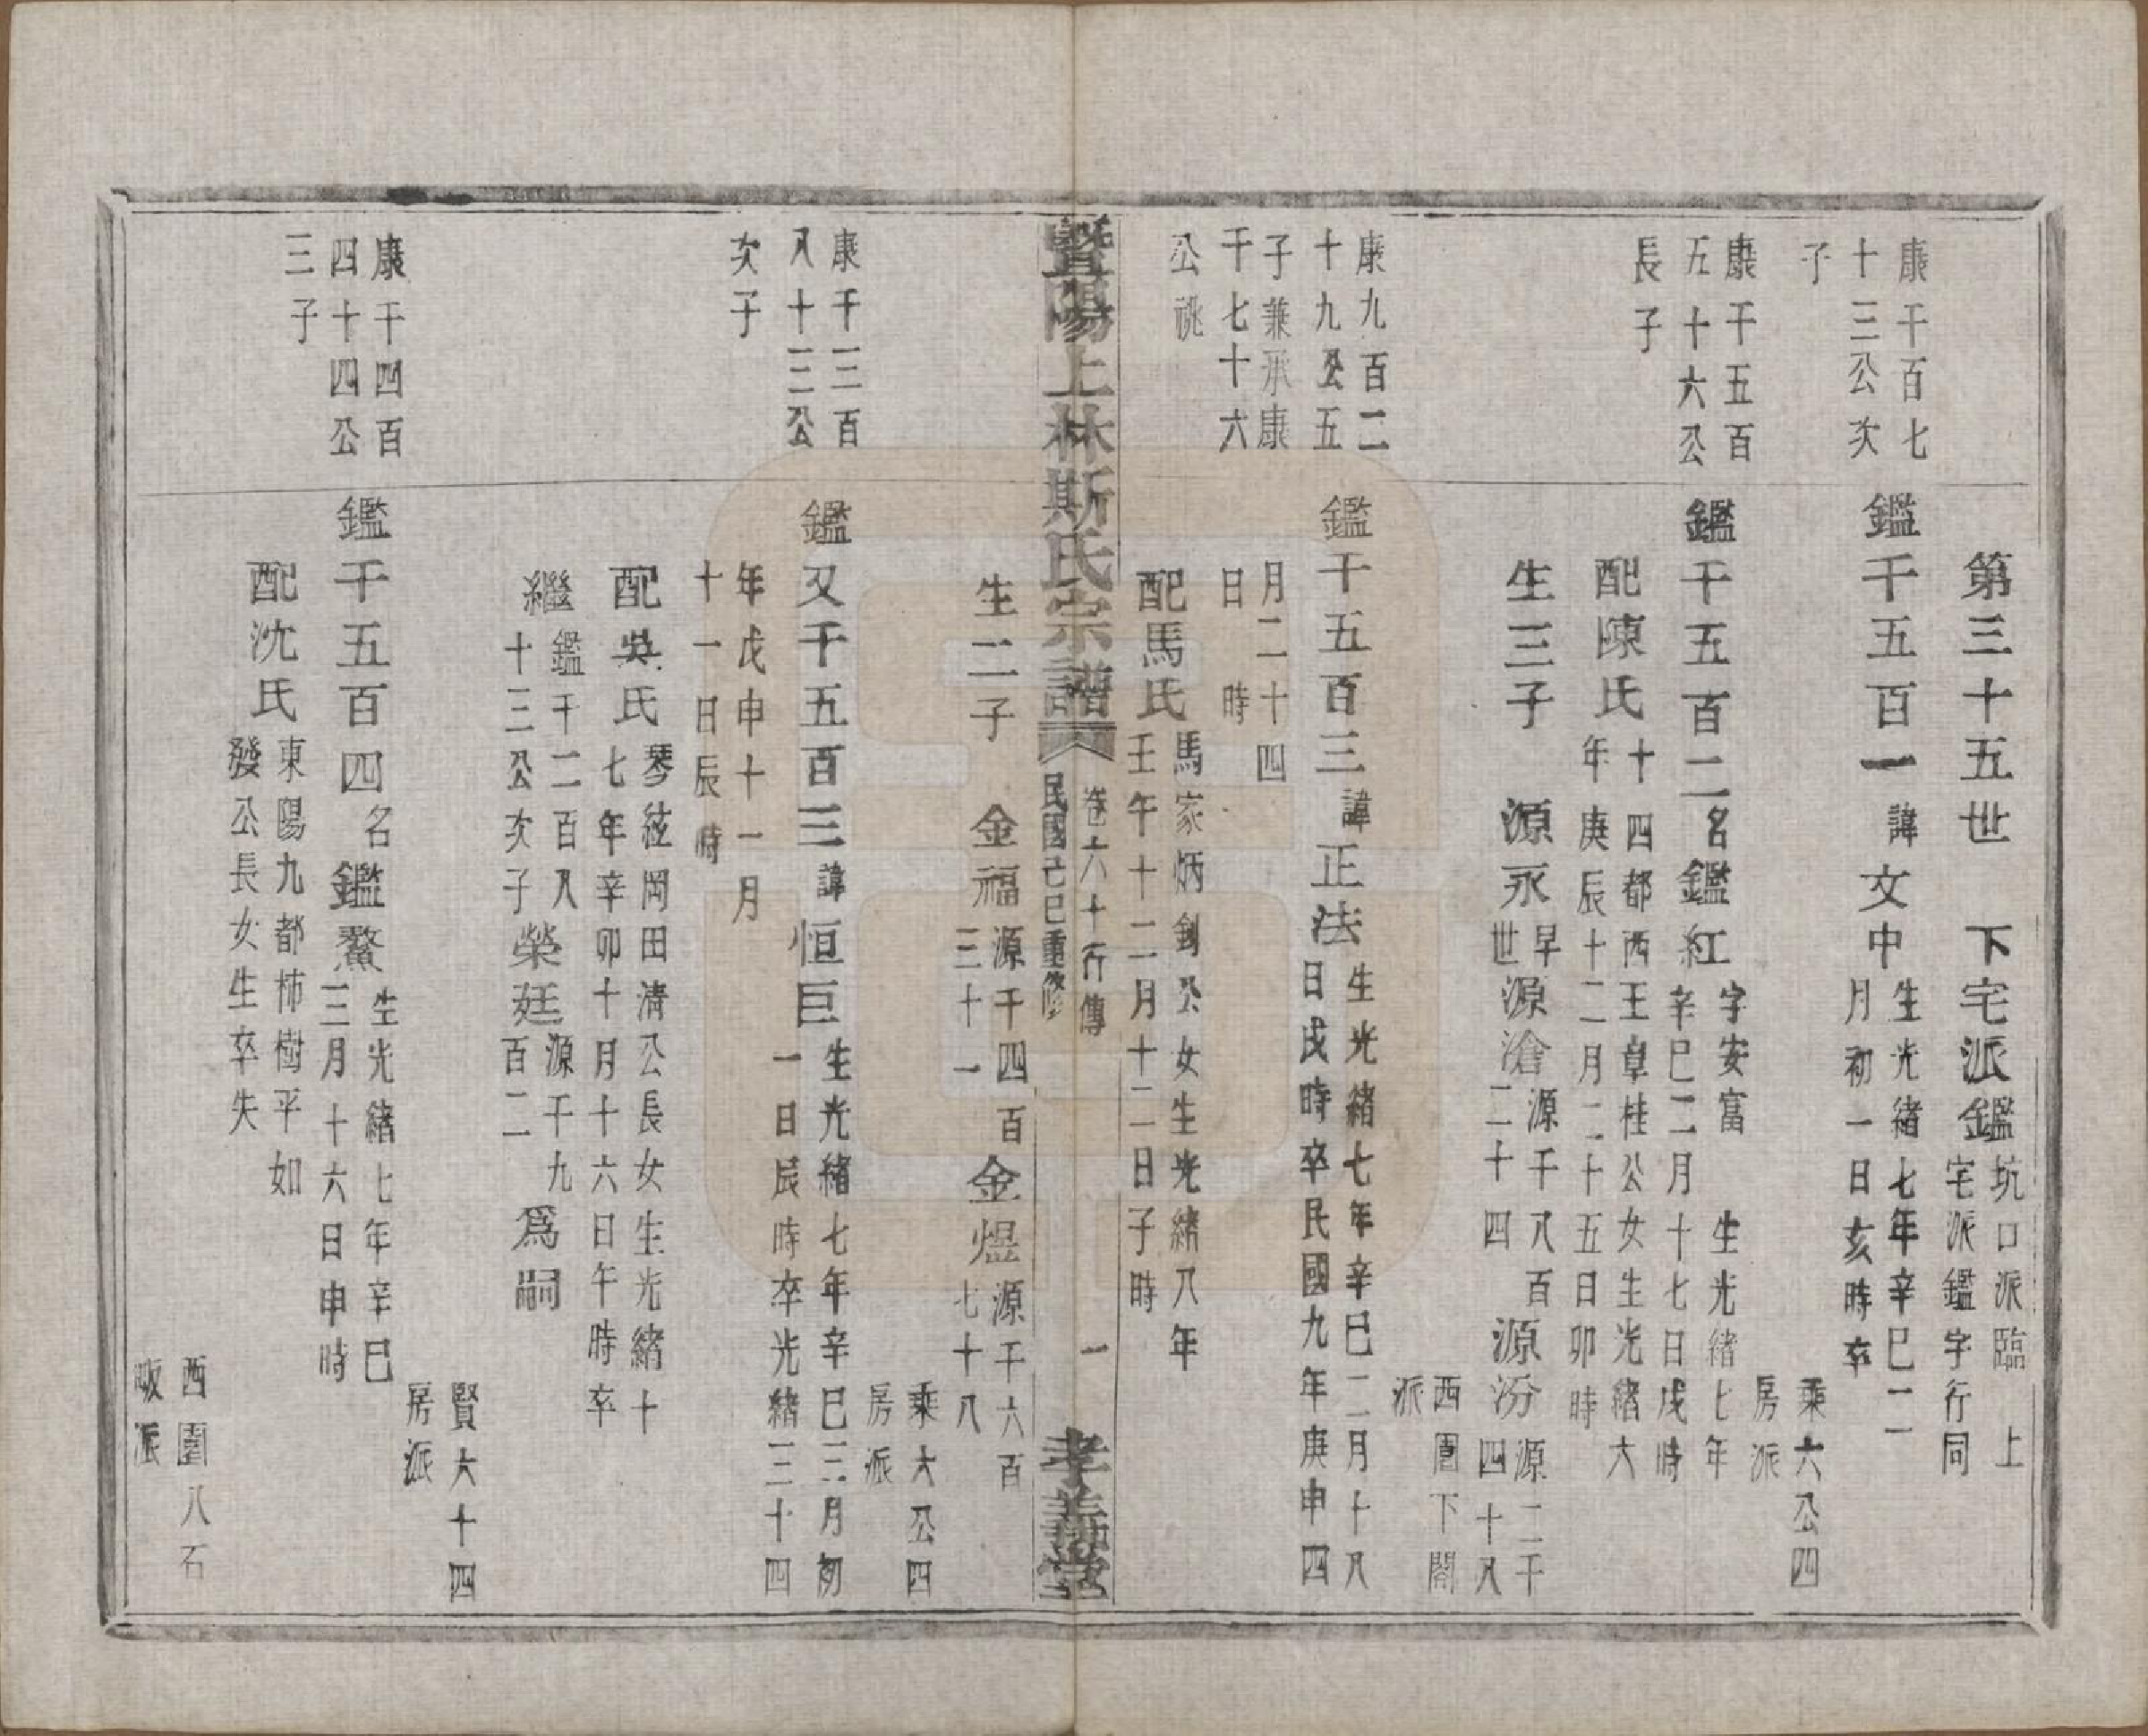 第三十五世　下宅派鑑坑口派臨　上
宅派鑑字行同
康千百七
十三公次
子
鑑千五百一諱文中生光緒七年辛巳二
月初一日亥時卒
乘六公四
房派
康千五百
五十六公
長子
鑑千五百二名鑑紅字安富　生光緒七年
辛巳二月十七日戌時
配陳氏十四都西王阜桂公女生光緒六
年庚辰十二月二十五日卯時
生三子　源永早
世源滄源千八百
二十四源汾源二千
四十八
西園下閣
派
康九百二
十九公五
子兼承康
千七十六
公祧
鑑千五百三諱正法生光緒七年辛巳二月十八
日戌時卒民國九年庚申四
月二十四
日　時
配馬氏馬家炳釗公女生光緒八年
壬午十二月十二日子時
暨陽上林斯氏宗譜
卷六十行傳
民國己巳重修
一
孝義堂
生二子　金福源千四百
三十一金煜源千六百
七十八
乘六公四
房派
康千三百
八十三公
次子
鑑又千五百三諱恒巨生光緒七年辛巳三月初
一日辰時卒光緒三十四
年戊申十一月
十一日辰時
配吳氏琴絃岡田清公長女生光緒十
七年辛卯十月十六日午時卒
繼鑑千二百八
十三公次子榮廷源千九
百二爲嗣
賢六十四
房派
康千四百
四十四公
三子
鑑千五百四名鑑鰲生光緒七年辛巳
三月十六日申時
配沈氏東陽九都柿樹平如
發公長女生卒失
西園八石
畈派